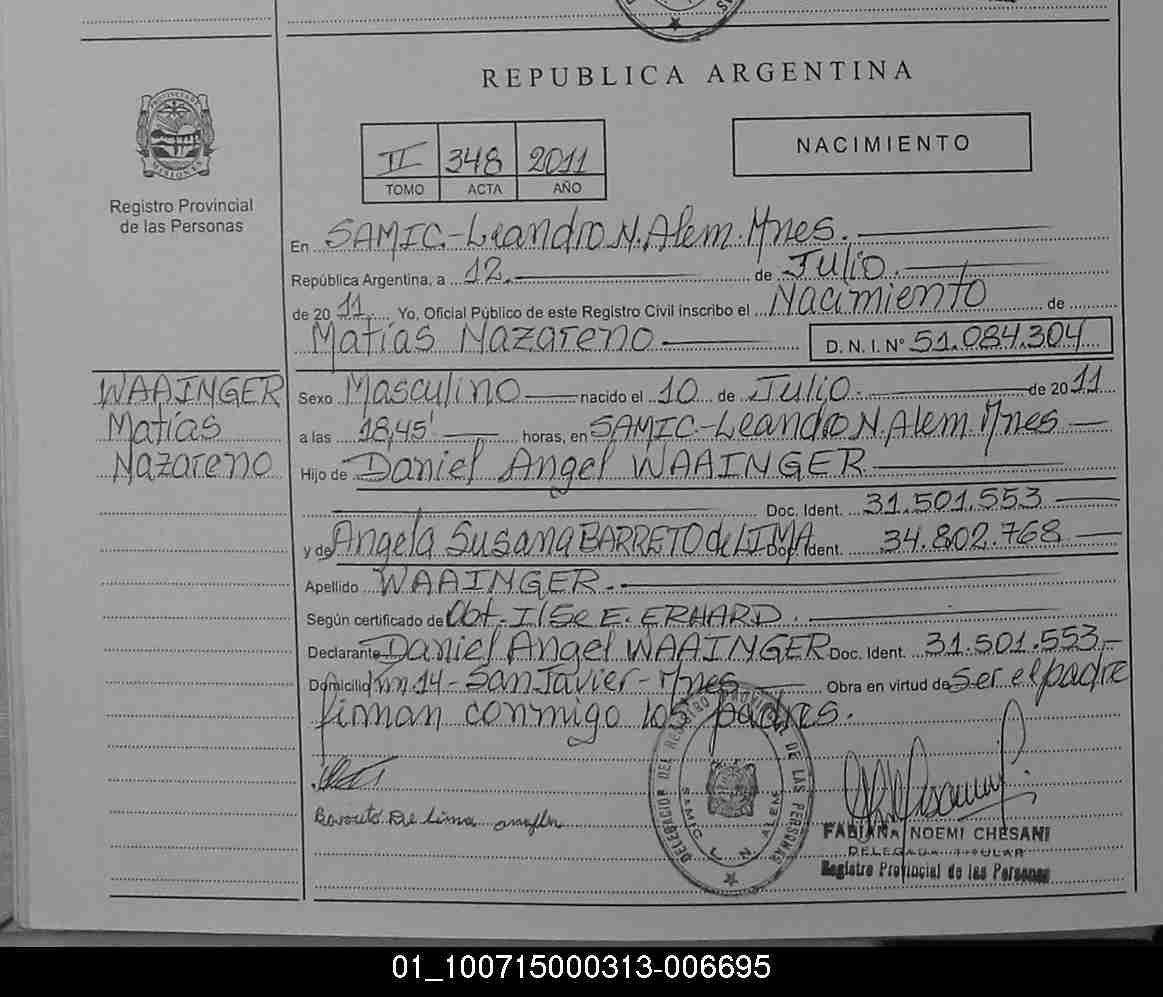 REPUBLICA ARGENTINA
PROVINCIA DE MISIONES
Registro Provincial
de las Personas
NACIMIENTO
II 348 2011
TOMO ACTA AÑO
En SAMIC.-Leandro N. Alem. Mnes.
República Argentina, a 12. de Julio.
de 2011. Yo, Oficial Público de este Registro Civil inscribo el Nacimiento de
Matías Nazareno D. N. I. Nº 51.084.304
WAAINGER
Matías
Nazareno
Sexo Masculino nacido el 10 de Julio. de 2011
a las 18,45' horas, en SAMIC-Leandro N. Alem. Mnes
Hijo de Daniel Angel WAAINGER
Doc. Ident. 31.501.553
y de Angela Susana BARRETO de LIMA Doc. Ident. 34.802.768
Apellido WAAINGER.
Según certificado de Obt. Ilse E. ERHARD.
Declarante Daniel Angel WAAINGER Doc. Ident. 31.501.553
Domicilio km 14-San Javier-Mnes Obra en virtud de Ser el padre
firman conmigo los padres.
Barreto De Lima
DELEGACION DEL REGISTRO PROVINCIAL DE LAS PERSONAS
SAMIC L. N. ALEM
FABIANA NOEMI CHESANI
DELEGADA TITULAR
Registro Provincial de las Personas
01_100715000313-006695